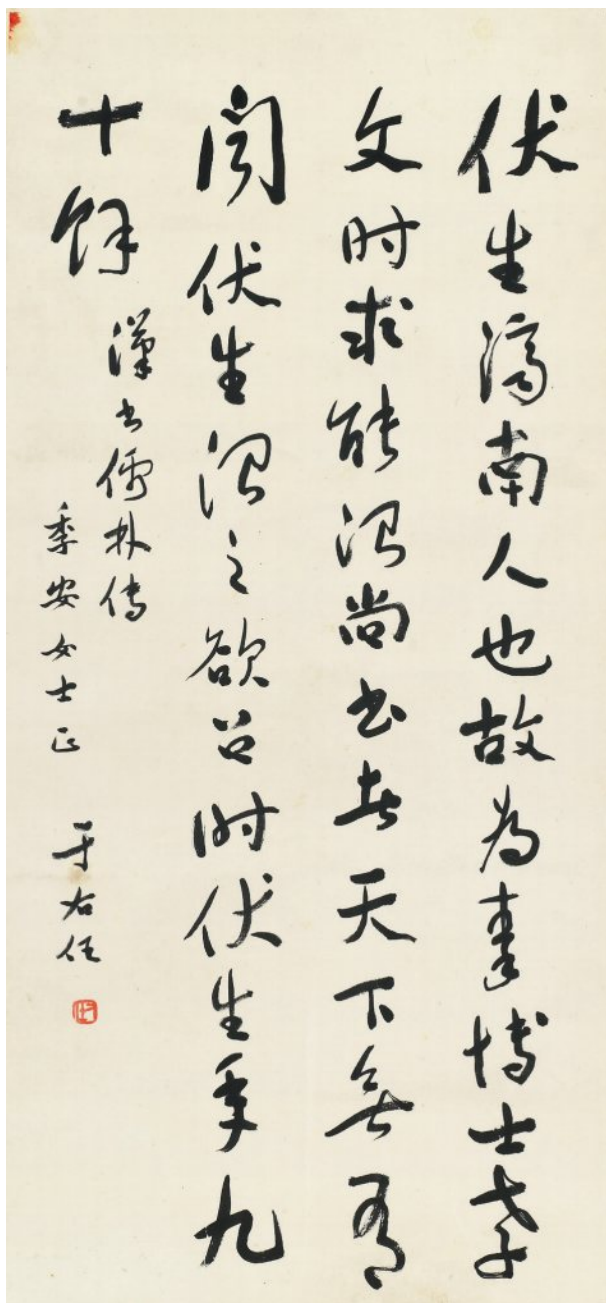 伏生濟南人也故為秦博士孝
文時求能治尚書者天下無有
聞伏生治之欲召時伏生年九
十餘
漢書儒林傳
季安女士正
于右任